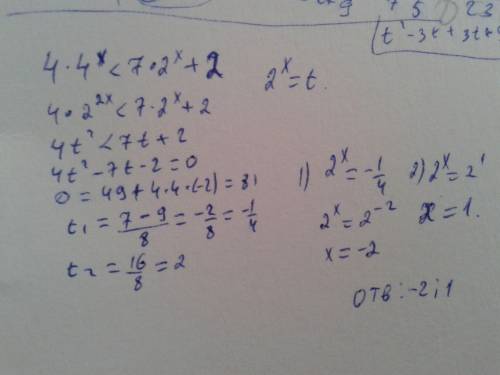 9 + 5 23
t² - 3t + 3t + 9
4 · 4ˣ < 7 · 2ˣ + 2
2ˣ = t.
4 · 2²ˣ < 7 · 2ˣ + 2
4t² < 7t + 2
4t² - 7t - 2 = 0
D = 49 + 4 · 4 · (-2) = 81
t₁ = (7 - 9)/8 = -2/8 = -1/4
t₂ = 16/8 = 2
1) 2ˣ = -1/4
2ˣ = 2⁻²
x = -2
2) 2ˣ = 2¹
x = 1.
отв: -2; 1